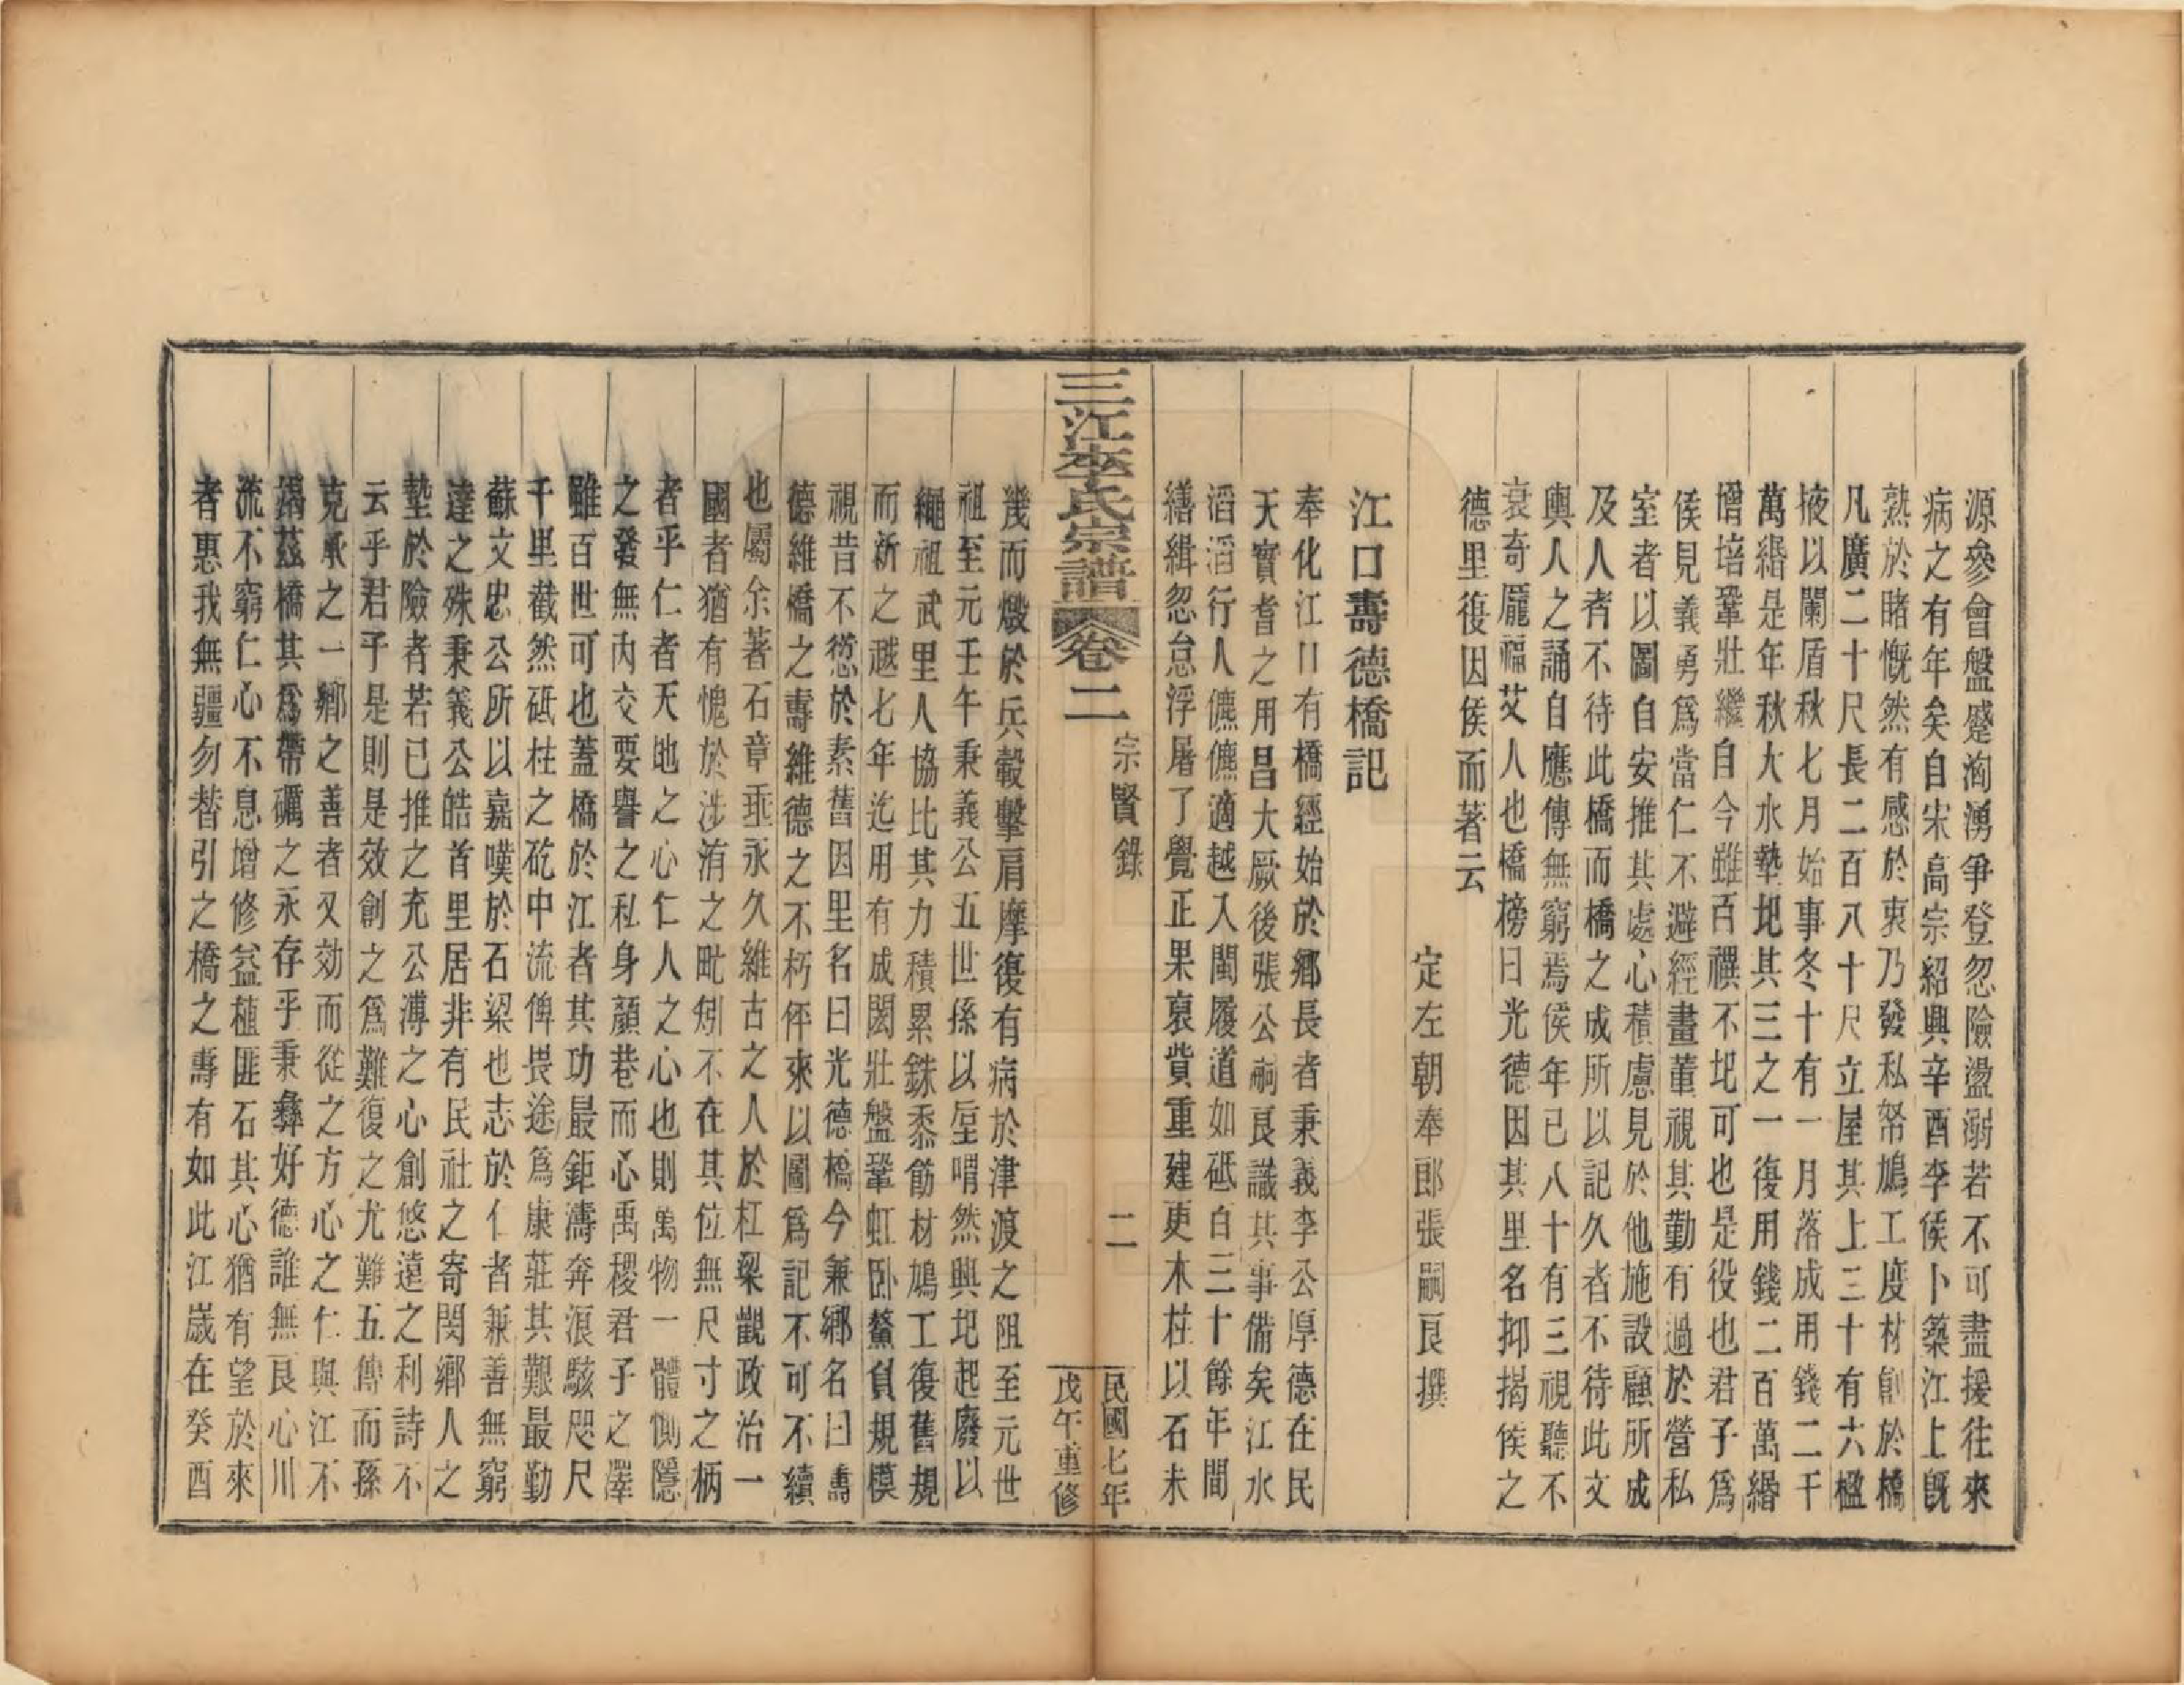 源參會盤蹙洶湧爭登忽險盪溺若不可盡援往來
病之有年矣自宋高宗紹興辛酉李侯卜築江上旣
熟於睹慨然有感於衷乃發私帑鳩工度材創於橋
凡廣二十尺長二百八十尺立屋其上三十有六楹
掖以闌盾秋七月始事冬十有一月落成用錢二千
萬緡是年秋大水墊圯其三之一復用錢二百萬緡
增培鞏壯繼自今雖百禩不圯可也是役也君子爲
侯見義勇爲當仁不避經畫董視其勤有過於營私
室者以圖自安推其處心積慮見於他施設顧所成
及人者不待此橋而橋之成所以記久者不待此文
輿人之誦自應傳無窮焉侯年已八十有三視聽不
衰奇龐福艾人也橋榜曰光德因其里名抑揭侯之
德里復因侯而著云
定左朝奉郎張嗣良撰
江口壽德橋記
奉化江口有橋經始於鄉長者秉義李公厚德在民
天實耆之用昌大厥後張公嗣良識其事備矣江水
滔滔行人儦儦適越入閩履道如砥自三十餘年間
繕緝忽怠浮屠了覺正果裒貲重建更木柱以石未
三江李氏宗譜
卷二
宗賢錄
二
民國七年
戊午重修
幾而燬於兵轂擊肩摩復有病於津渡之阻至元世
祖至元壬午秉義公五世孫以垕喟然興圯起廢以
繩祖武里人協比其力積累銖黍飭材鳩工復舊規
而新之越七年迄用有成閎壯盤鞏虹卧鰲負規模
視昔不愆於素舊因里名曰光德橋今兼鄉名曰壽
德維橋之壽維德之不朽伻來以圖爲記不可不續
也屬余著石章垂永久維古之人於杠梁觀政治一
國者猶有愧於涉洧之毗矧不在其位無尺寸之柄
者乎仁者天地之心仁人之心也則萬物一體惻隱
之發無內交要譽之私身顏巷而心禹稷君子之澤
雖百世可也蓋橋於江者其功最鉅濤奔浪駭咫尺
千里截然砥柱之矻中流俾畏途爲康莊其艱最勤
蘇文忠公所以嘉嘆於石梁也志於仁者兼善無窮
達之殊秉義公皓首里居非有民社之寄閔鄉人之
墊於險者若已推之充公溥之心創悠遠之利詩不
云乎君子是則是效創之爲難復之尤難五傳而孫
克承之一鄉之善者又効而從之方心之仁與江不
竭茲橋其爲帶礪之永存乎秉彝好德誰無良心川
流不窮仁心不息增修益植匪石其心猶有望於來
者惠我無疆勿替引之橋之壽有如此江歲在癸酉